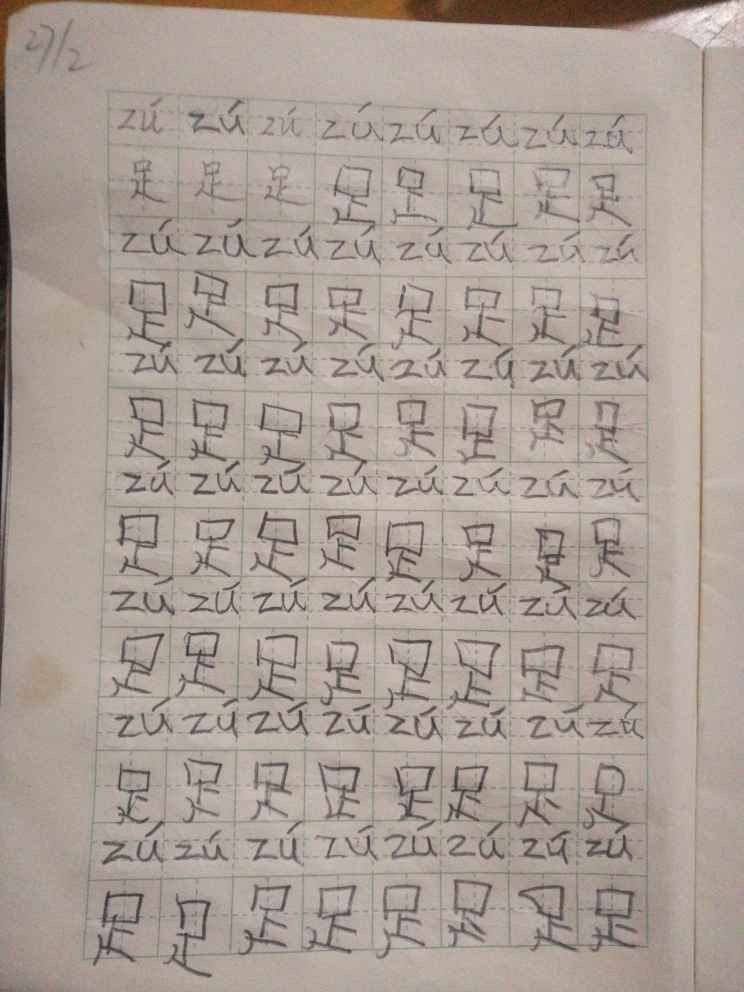 27/2
zú zú zú zú zú zú zú zú
足 足 足 足 足 足 足 足
zú zú zú zú zú zú zú zú
足 足 足 足 足 足 足 足
zú zú zú zú zú zú zú zú
足 足 足 足 足 足 足 足
zú zú zú zú zú zú zú zú
足 足 足 足 足 足 足 足
zú zú zú zú zú zú zú zú
足 足 足 足 足 足 足 足
zú zú zú zú zú zú zú zú
足 足 足 足 足 足 足 足
zú zú zú zú zú zú zú zú
足 足 足 足 足 足 足 足